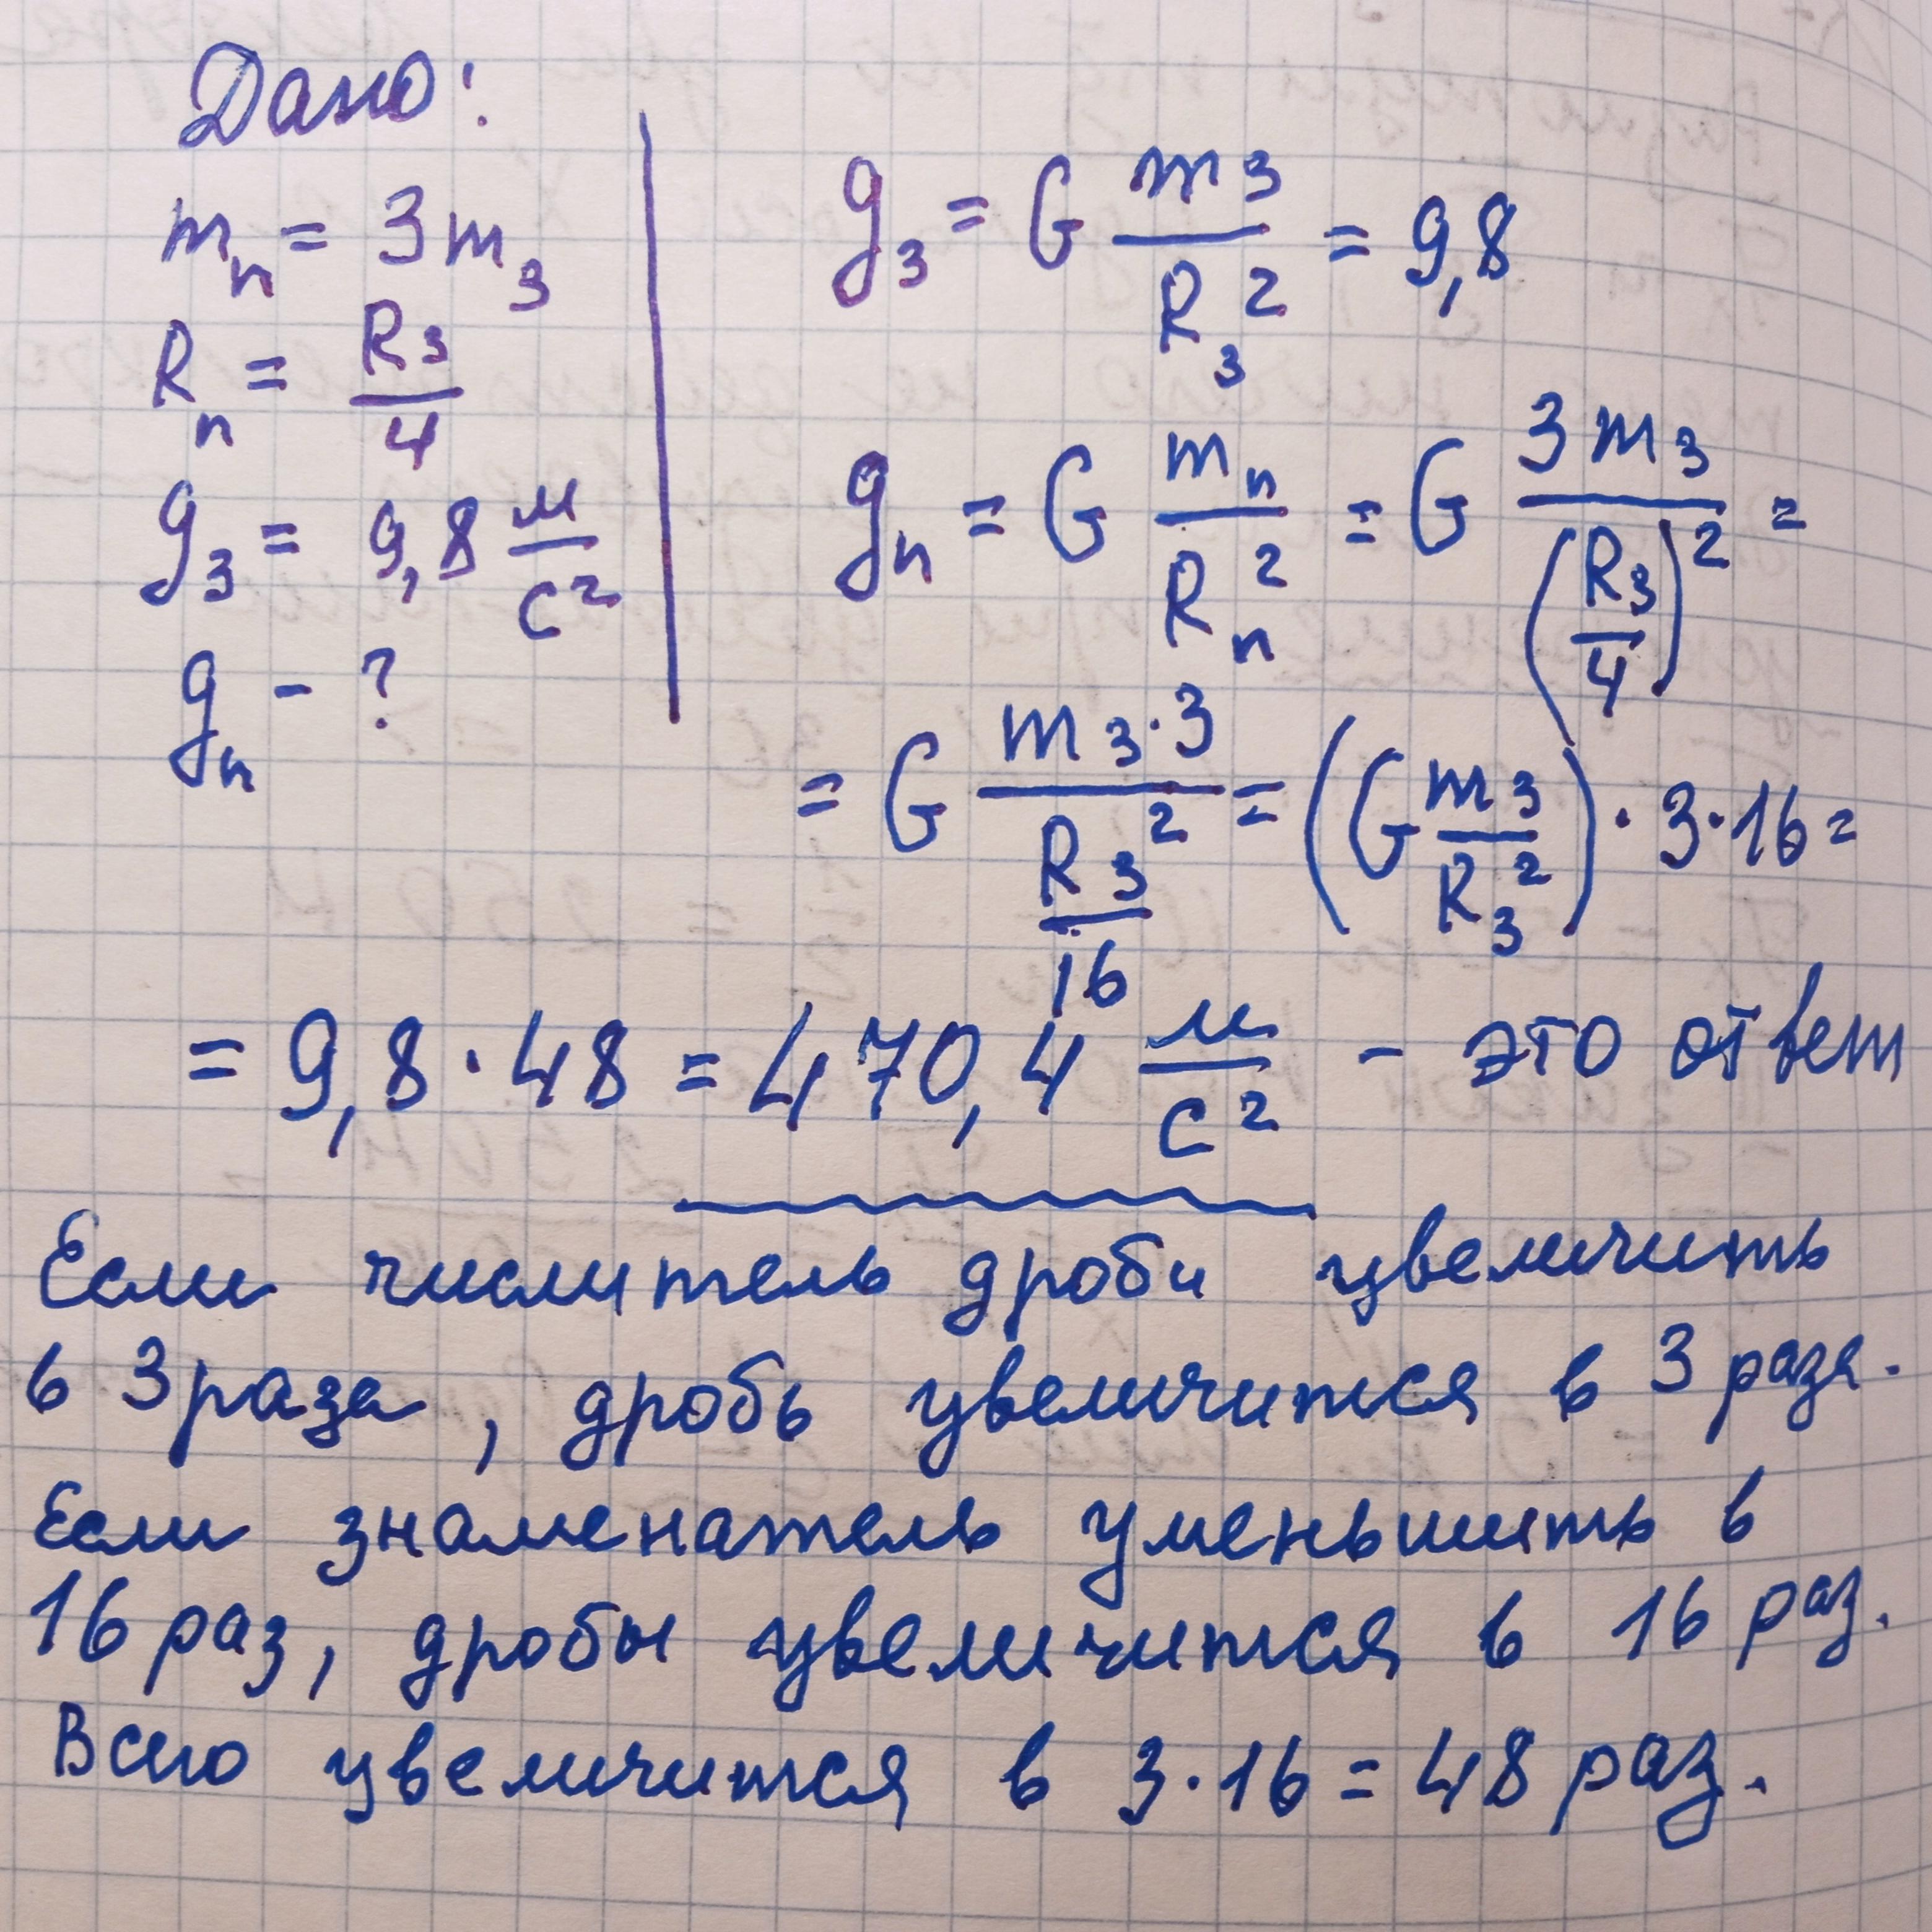 Дано:
mп = 3mз
Rп = Rз/4
gз = 9,8 м/с²
gп - ?
gз = G mз/Rз² = 9,8
gп = G mп/Rп² = G 3mз/(Rз/4)² =
= G mз·3/(Rз²/16) = (G mз/Rз²)·3·16=
= 9,8·48 = 470,4 м/с² - это ответ
Если числитель дроби увеличить
в 3 раза, дробь увеличится в 3 раза.
Если знаменатель уменьшить в
16 раз, дробы увеличится в 16 раз.
Всего увеличится в 3·16=48 раз.